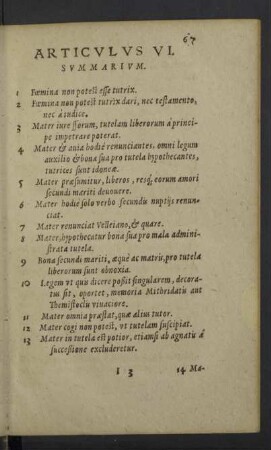 67
ARTICVLVS VI.
SVMMARIVM.
1 Fœmina non potest esse tutrix.
2 Fœmina non potest tutrix dari, nec testamento,
nec à iudice.
3 Mater iure ipsorum, tutelam liberorum à princi-
pe impetrare poterat.
4 Mater & auia hodiè renunciantes omni legum
auxilio & bona sua pro tutela hypothecantes,
tutrices sunt idoneæ.
5 Mater præsumitur, liberos, resq; eorum amori
secundi mariti deuouere.
6 Mater hodiè solo verbo secundis nuptijs renun-
ciat.
7 Mater renunciat Velleiano, & quare.
8 Mater, hypothecatur bona sua pro mala admini-
strata tutela.
9 Bona secundi mariti, æquè ac matris, pro tutela
liberorum sunt obnoxia.
10 Legem vt quis dicere possit singularem, decora-
tus sit, oportet, memoria Mithridatis aut
Themistoclis viuaciore.
11 Mater omnia præstat, quæ alius tutor.
12 Mater cogi non potest, vt tutelam suscipiat.
13 Mater in tutela est potior, etiamsi ab agnatis à
successione excluderetur.
I 3 14 Ma-